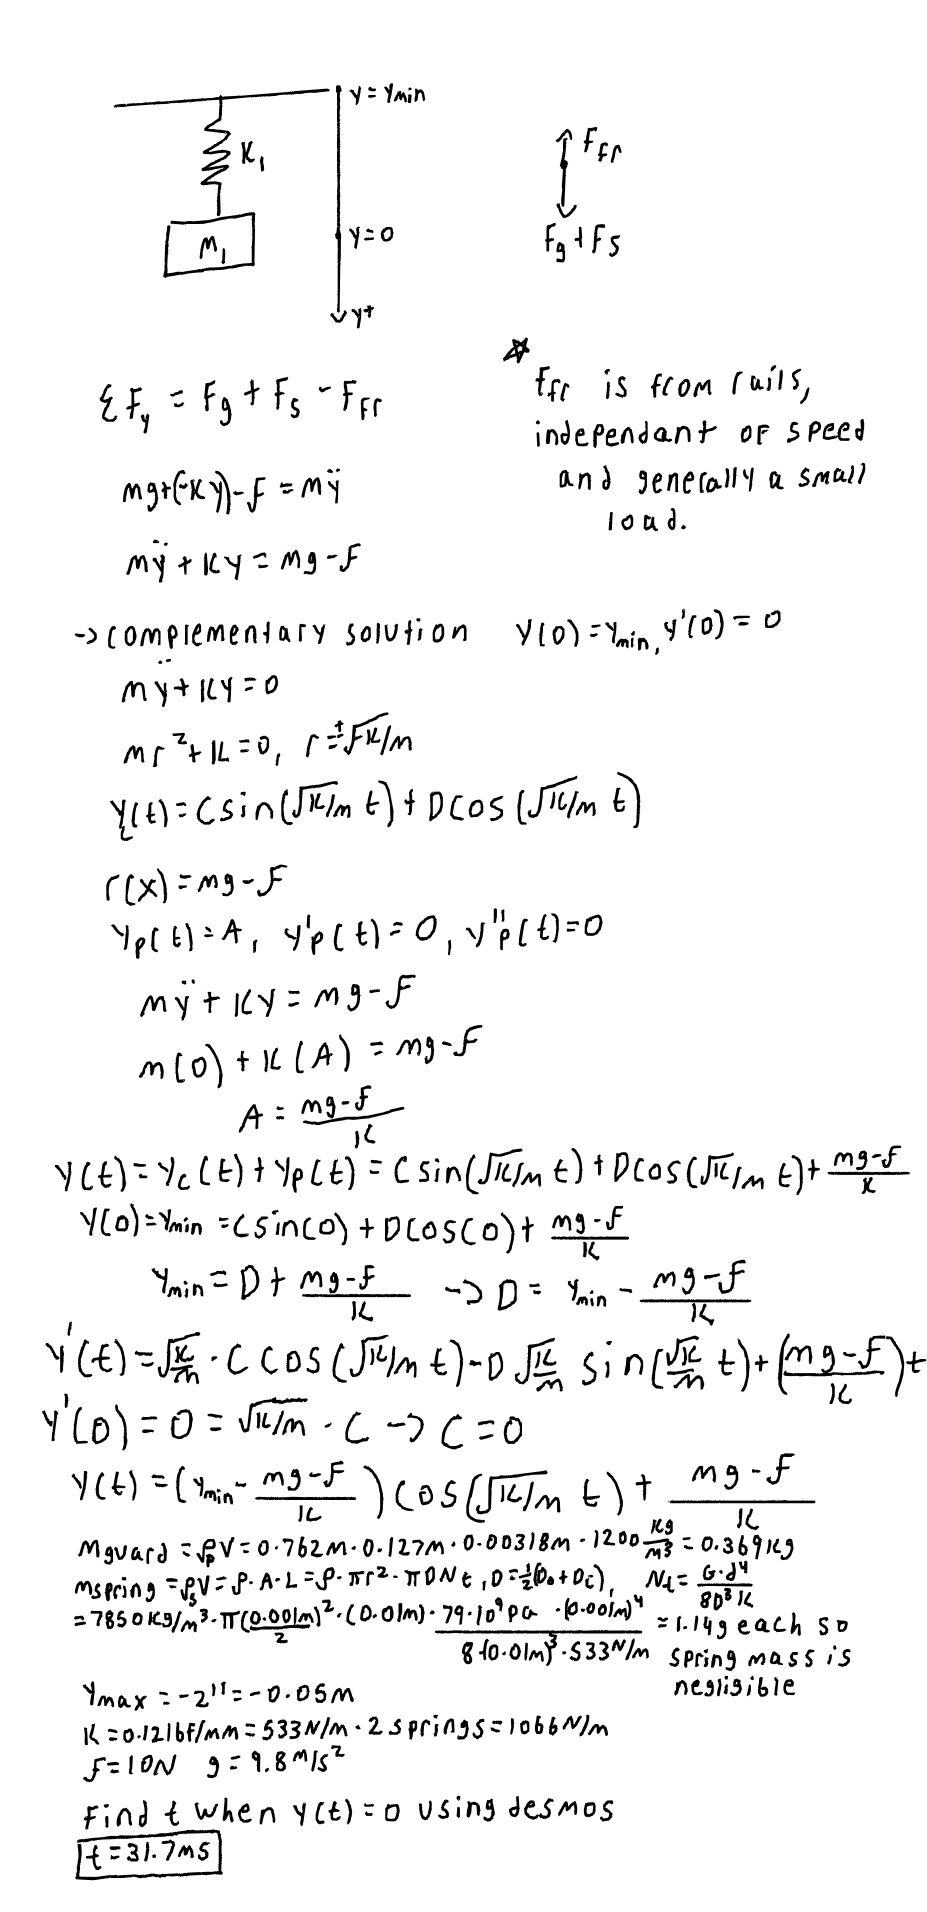 y = ymin
K1
M1
y=0
y+
Ffr
Fg + Fs
ΣFy = Fg + Fs - Ffr
mg+(-Ky)-f = mÿ
mÿ + Ky = mg-f
* Ffr is from rails,
independant of speed
and generally a small
load.
-> complementary solution y(0)=ymin, y'(0) = 0
mÿ+Ky=0
mr²+K=0, r=±√K/m
yc(t)=Csin(√K/m t)+Dcos(√K/m t)
r(x)=mg-f
yp(t)=A, y'p(t)=0, y''p(t)=0
mÿ+Ky=mg-f
m(0)+K(A)=mg-f
A = mg-f/K
y(t)=yc(t)+yp(t)=Csin(√K/m t)+Dcos(√K/m t)+ mg-f/K
y(0)=ymin=Csin(0)+Dcos(0)+ mg-f/K
ymin=D+ mg-f/K -> D= ymin - mg-f/K
y'(t)=√K/m · C cos(√K/m t)-D √K/m sin(√K/m t)+(mg-f/K)t
y'(0)=0=√K/m · C -> C=0
y(t)=(ymin- mg-f/K)cos(√K/m t)+ mg-f/K
mguard=ρpV=0.762m·0.127m·0.00318m·1200 kg/m³=0.369kg
mspring=ρsV=ρ·A·L=ρ·πr²·πDNt, D=½(Do+Di), Nt= G·d⁴/8D³K
=7850kg/m³·π(0.001m/2)²·(0.01m)· 79·10⁹Pa·(0.001m)⁴/8·(0.01m)³·533N/m =1.14g each so
spring mass is
negligible
ymax=-2"=-0.05m
K=0.12lbf/mm=533N/m·2springs=1066N/m
f=10N g=9.8m/s²
Find t when y(t)=0 using desmos
t=31.7ms